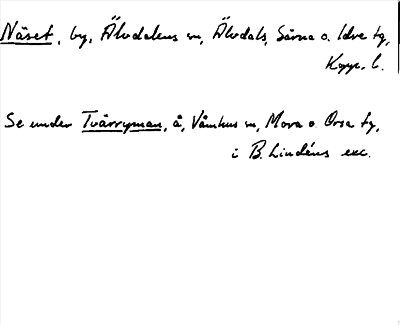 Näset, by, Älvdalens sn, Älvdals, Särna o. Idre tg,
Kopp. l.
Se under Tvärryman, å, Våmhus sn, Mora o. Orsa tg,
i B. Lindéns exc.